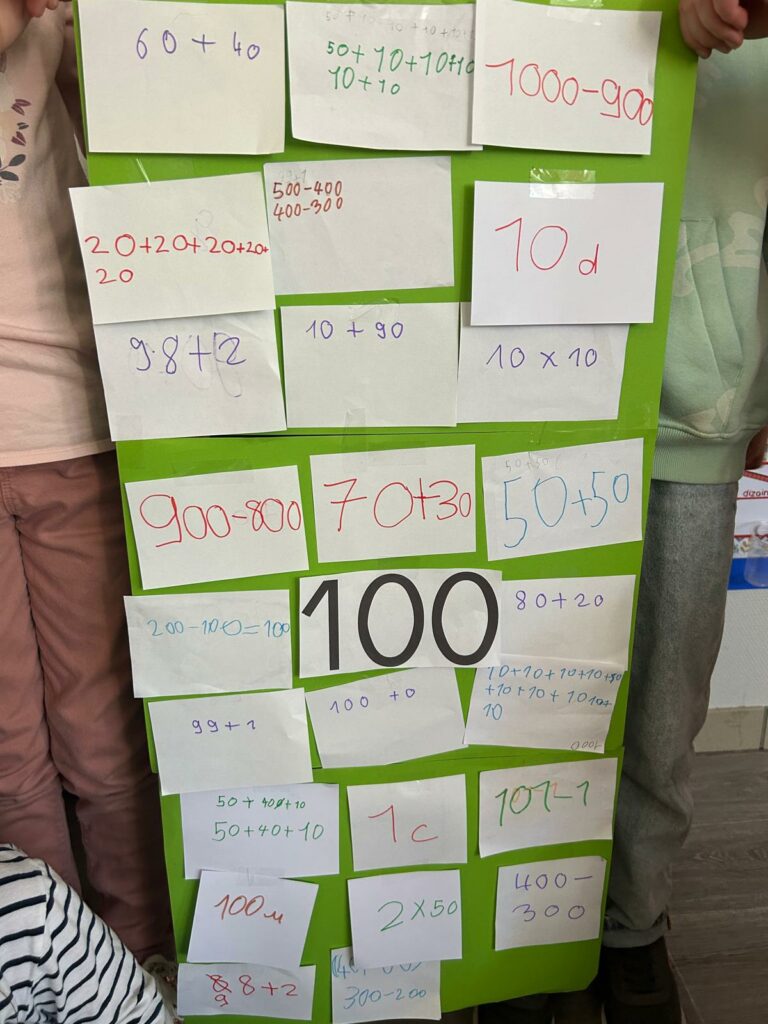 60 + 40
50+ 10+10+10
10+10
1000-900
20+20+20+20+
20
500-400
400-300
10 d
98+2
10 + 90
10 x 10
900-800
70+30
50+50
200-100=100
100
80+20
99+1
100 +0
10+10+10+10+10
+10+10+10 10+
10
50+40+10
50+40+10
1c
101-1
100u
2x50
400-
300
98+2
300-200
dizain